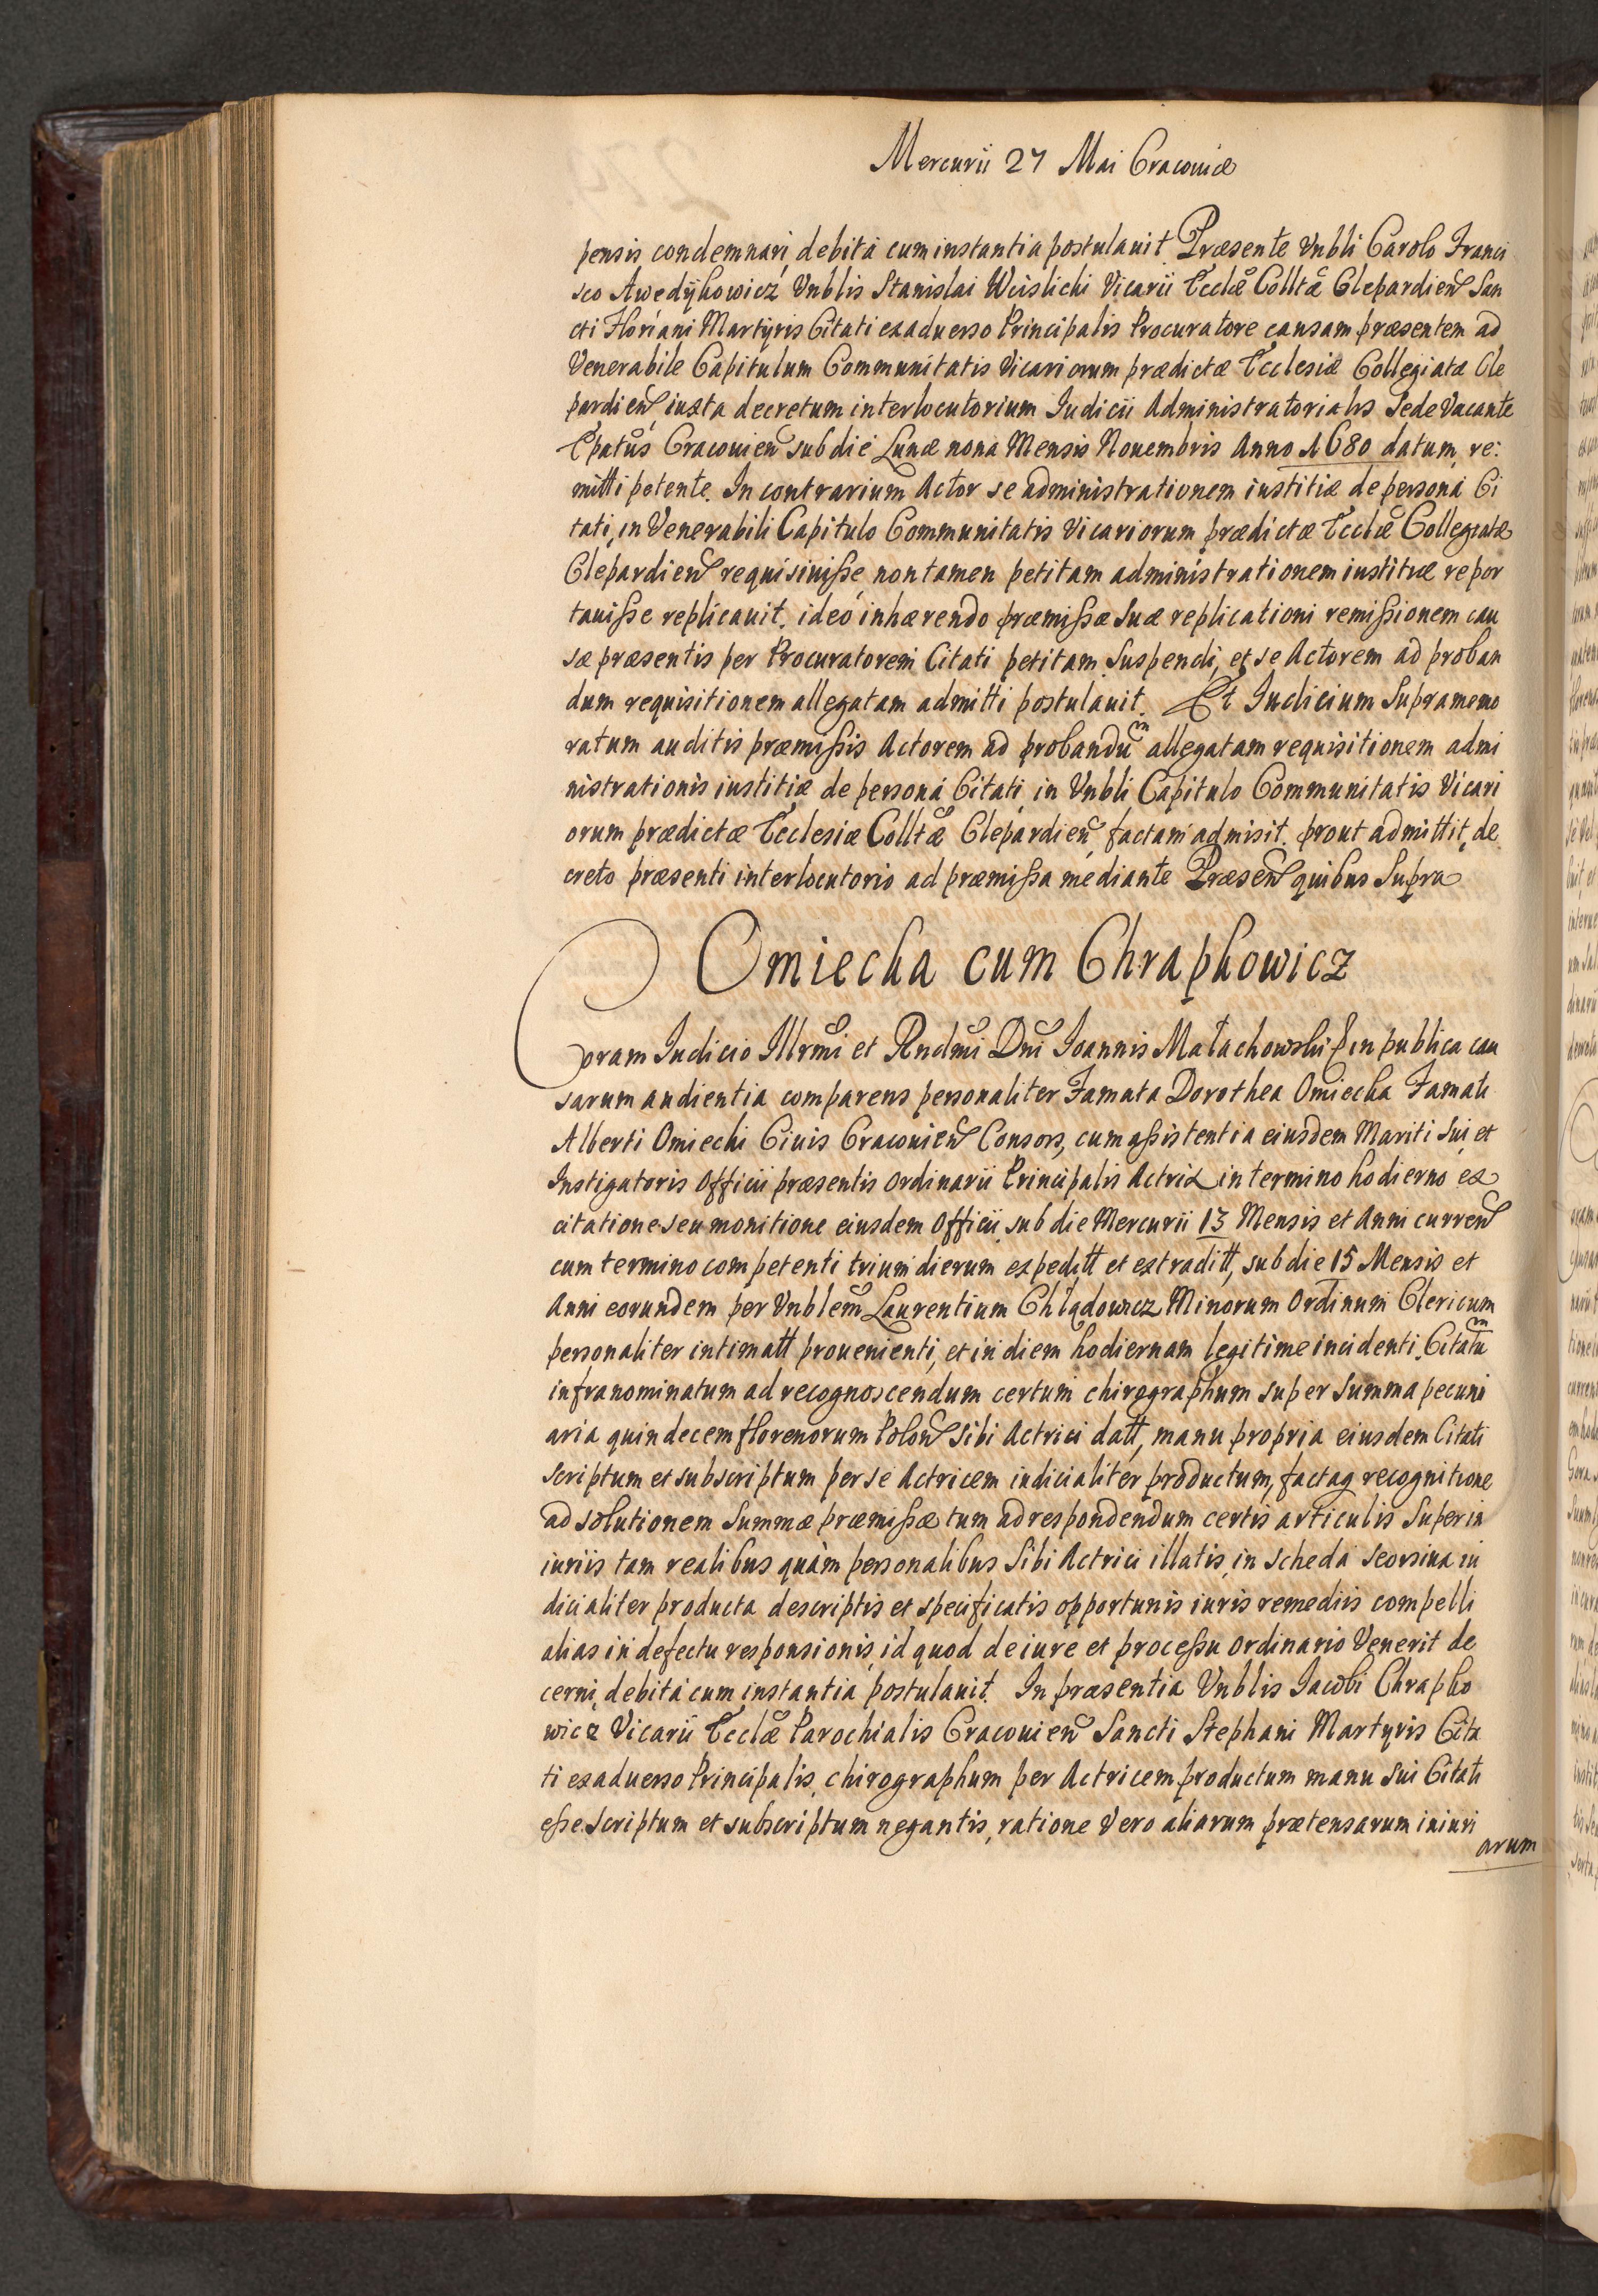 Mercurii 27 Mai Cracoviæ
pensis condemnari, debitá cum instantia postulauit. Præsente Vnbli Carolo Franci
sco Awedÿkowicz Vnblis Stanislai Wislicki Vicarii Eccłæ Colltæ Clepardien̄ San
cti Floriani Martÿris Citati exaduerso Principalis Procuratore causam præsentem ad
Venerabile Capitulum Communitatis Vicariorum prædictæ Ecclesiæ Collegiatæ Cle
pardien̄, iuxta decretum interlocutorium Iudicii Administratorialis Sede Vacante
Epatus Cracouien̄ sub die Lunæ nona Mensis Nouembris Anno 1680 datum, re:
mitti petente. In contrarium Actor se administrationem iustitiæ de personá Ci
tati, in Venerabili Capitulo Communitatis Vicariorum prædictæ Eccłæ Collegiatæ
Clepardien̄ requisiuisse, non tamen petitam administrationem iustitiæ repor
tauisse replicauit. ideó inhærendo præmissæ suæ replicationi remissionem cau
sæ præsentis per Procuratorem Citati petitam Suspendi, et se Actorem ad proban
dum requisitionem allegatam admitti postulauit. Et Iudicium Supramemo
ratum auditis præmissis Actorem ad probandum allegatam requisitionem admi
nistrationis iustitiæ de personá Citati, in Vnbli Capitulo Communitatis Vicari
orum prædictæ Ecclesiæ Colltæ Clepardien̄, factam admisit. prout admittit, de
creto præsenti interlocutorio ad præmissa mediante Præsen̄ quibus Supra
Omiecka cum Chrapkowicz
Coram Iudicio Illrmi et Rndmi Dni Ioannis Małachowski in publica cau
sarum audientia comparens personaliter Famata Dorothea Omiecka Famati
Alberti Omiecki Ciuis Cracouien̄ Consors, cum assistentia eiusdem Mariti Sui et
Instigatoris Officii præsentis Ordinarii Principalis Actrix in termino hodierno ex
citatione seu monitione eiusdem Officii, sub die Mercurii 13 Mensis et Anni curren̄
cum termino competenti trium dierum expeditt et extraditt, sub die 15 Mensis et
Anni eorundem per Vnblem Laurentium Chlądowicz Minorum Ordinum Clericum
personaliter intimatt prouenienti, et in diem hodiernam legitime incidenti. Citatum
infranominatum ad recognoscendum certum chirographum super Summa pecuni
aria quindecem florenorum Polon̄ sibi Actrici datt, manu propria eiusdem Citati
scriptum et subscriptum per se Actricem iudicialiter productum, factaq recognitione
ad solutionem Summæ præmissæ tum ad respondendum certis articulis Super in
iuriis tam realibus quàm personalibus Sibi Actrici illatis, in scheda seorsiua iu
dicialiter producta descriptis et specificatis opportunis iuris remediis compelli
alias in defectu responsionis, id quod de iure et processu ordinario Venerit de
cerni, debitá cum instantia postulauit. In præsentia Vnblis Iacobi Chrapko
wicz Vicarii Eccłæ Parochialis Cracouien̄ Sancti Stephani Martyris Cita
ti exaduerso Principalis, chirographum per Actricem productum manu Sui Citati
esse scriptum et subscriptum negantis, ratione Vero aliarum prætensarum iniuri
arum